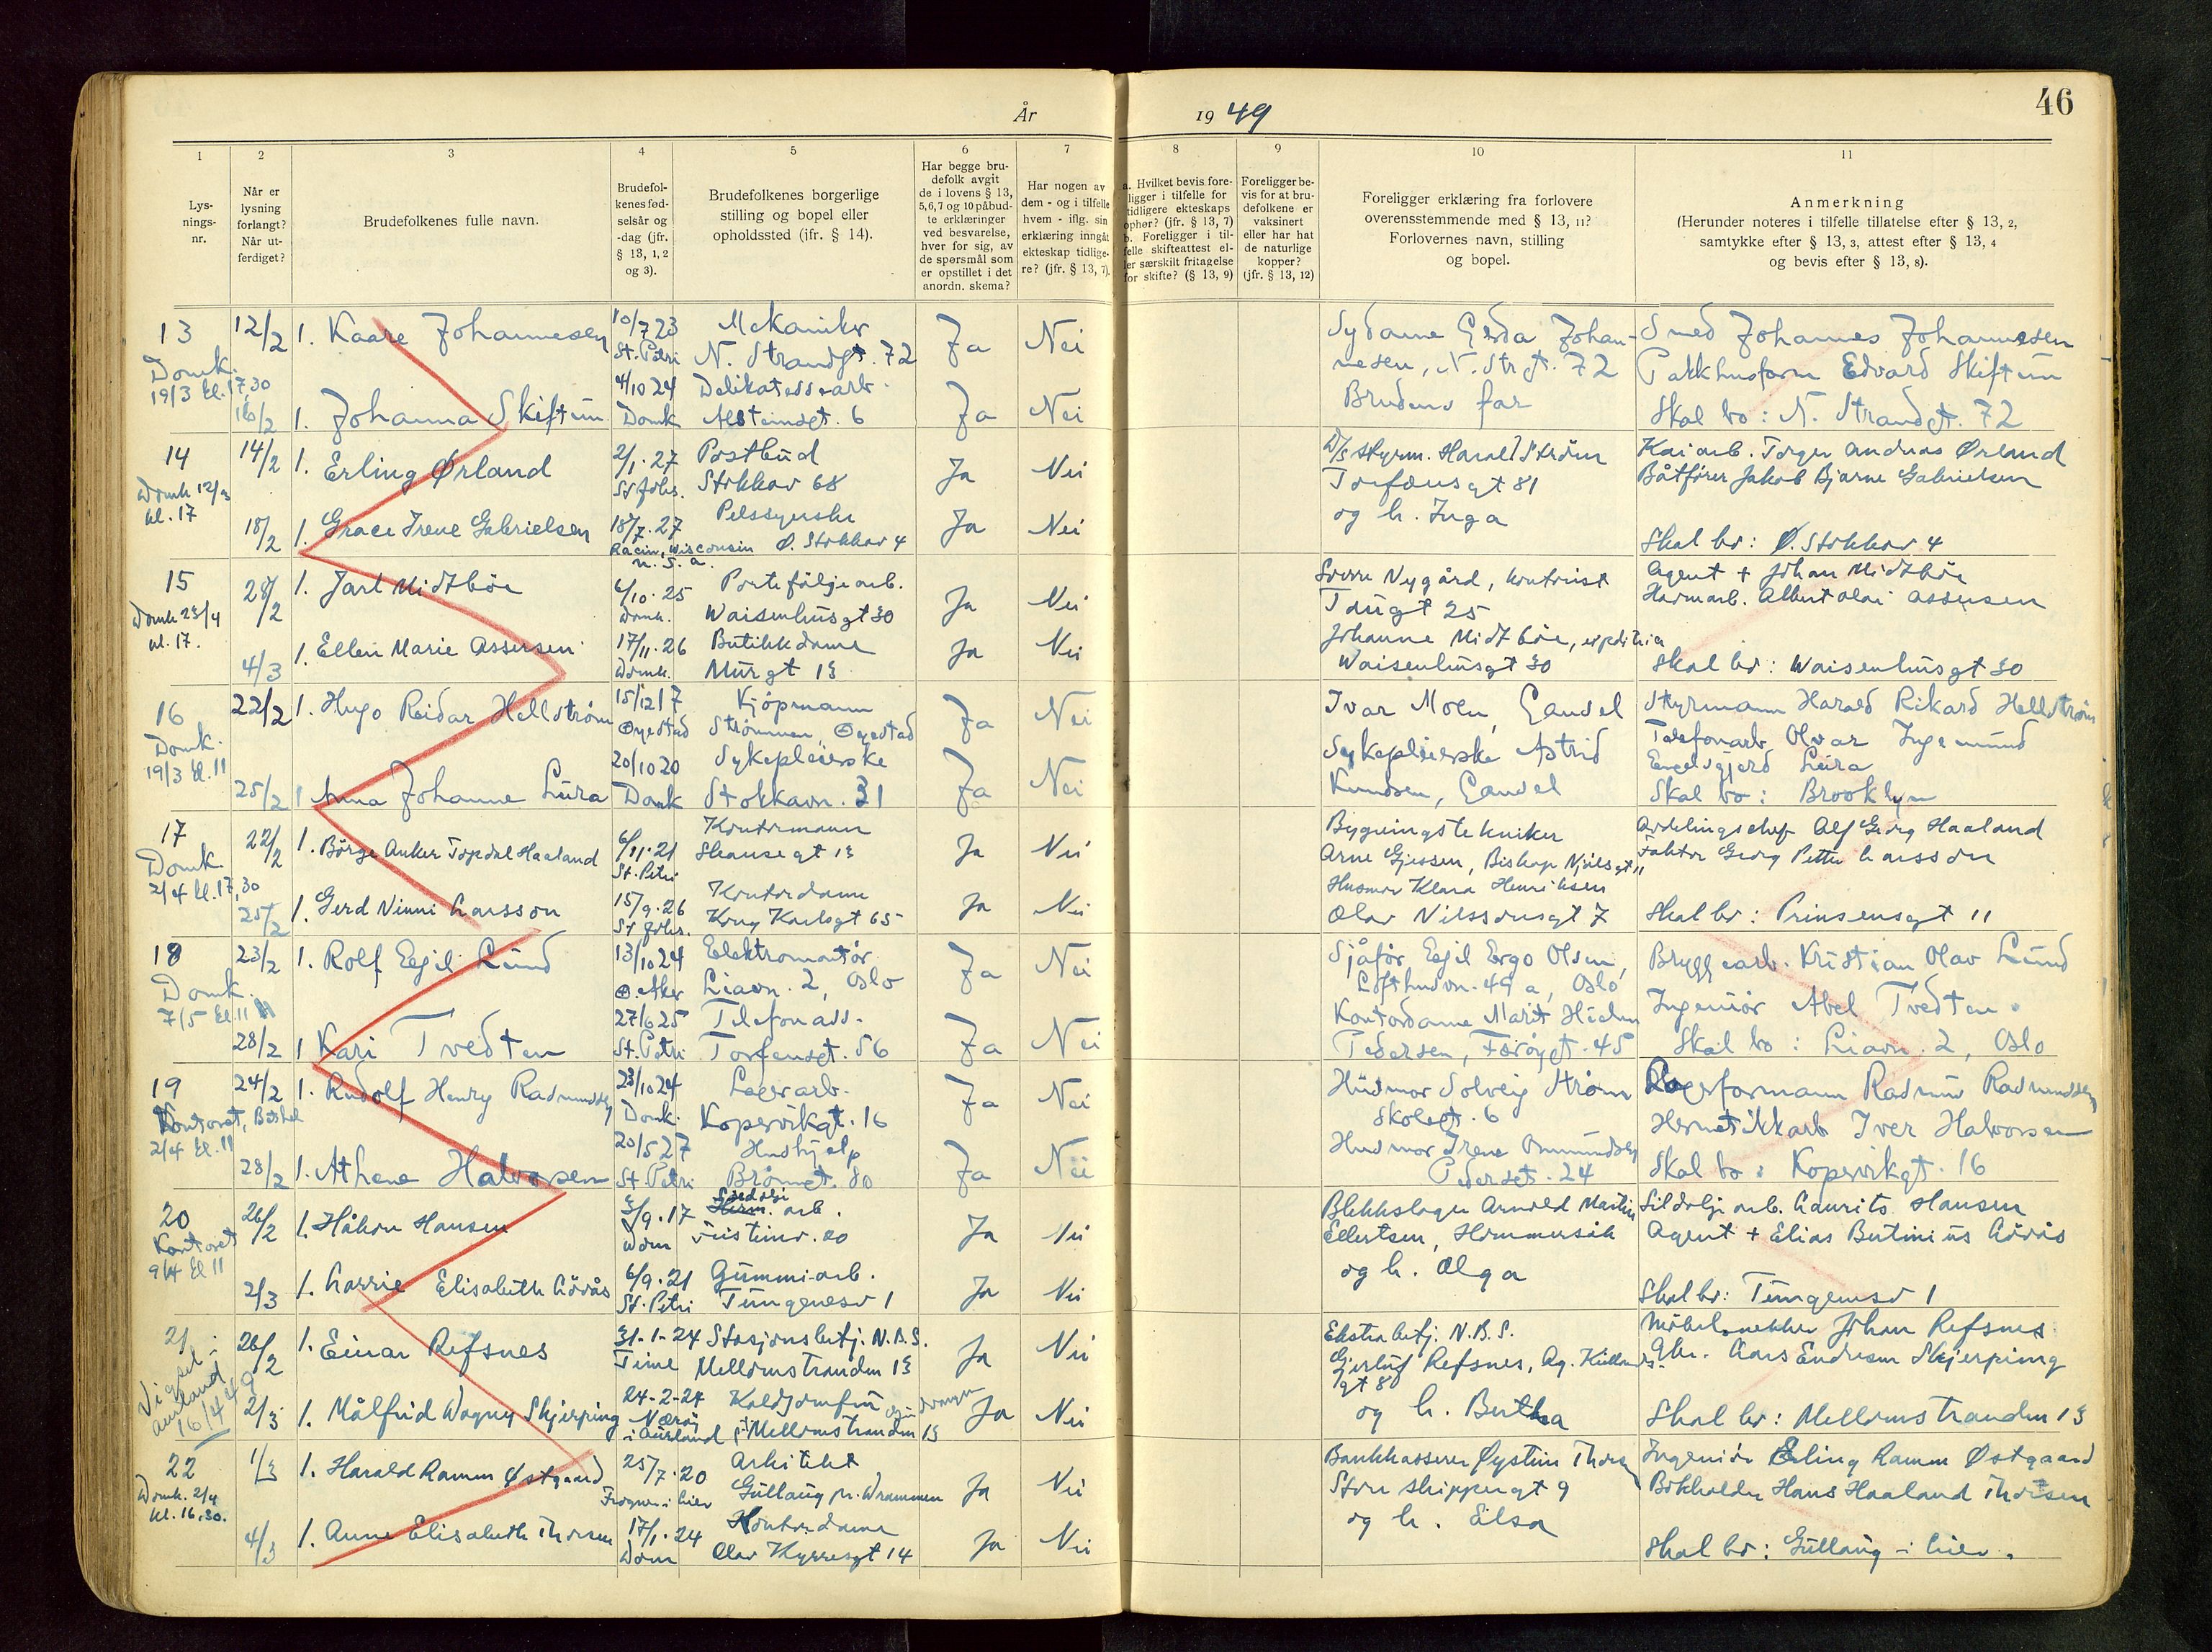 År 1949
46
1
2
3
4
5
6
7
8
9
10
11
Lys-
nings-
nr.
Når er
lysning
forlangt?
Når ut-
ferdiget?
Brudefolkenes fulle navn.
Brudefol-
kenes fød-
selsår og
-dag (jfr.
§ 13, 1, 2
og 3).
Brudefolkenes borgerlige
stilling og bopel eller
opholdssted (ifr. § 14).
Har begge bru-
defolk avgit
de i lovens § 13,
5,6,7 og 10 påbud-
te erklæringer
ved besvarelse,
hver for sig, av
de spørsmål som
er opstillet i det
anordn. skema?
Har nogen av
dem - og i tilfelle
hvem - iflg. sin
erklæring inngåt
ekteskap tidlige-
re? (jfr. § 13, 7).
a. Hvilket bevis fore-
ligger i tilfelle for
tidligere ekteskaps
ophør? (jfr. § 13, 7)
b. Foreligger i til-
felle skifteattest el-
ler særskilt fritagelse
for skifte? (§ 13, 9)
Foreligger be-
vis for at bru-
defolkene er
vaksinert
eller har hat
de naturlige
kopper?
(jfr. § 13, 12)
Foreligger erklæring fra forlovere
overensstemmende med § 13, 11?
Forlovernes navn, stilling
og bopel.
Anmerkning
(Herunder noteres i tilfelle tillatelse efter § 13, 2,
samtykke efter § 13, 3, attest efter § 13, 4
og bevis efter § 13, 8).
13
Domk.
19/3 kl. 17,30
12/2
16/2
1. Kaare Johannesen
1. Johanna Skiftun
10/7 23
St. Petri
4/10 24
Domk
Mekaniker
N. Strandgt. 72
Delikatessearb.
Alsteinsgt. 6
Ja Nei
Ja Nei
Sydame Gerda Johan-
nesen, N. Str.gt. 72
Brudens far
Smed Johannes Johannesen
Pakkhusform Edvard Skiftun
Skal bo: N. Strandgt. 72
14
Domk 12/3
kl. 17
14/2
18/2
1. Erling Ørland
1. Grace Irene Gabrielsen
2/1. 27
St Johs.
18/7. 27
Racin, Wisconsin
U. S. A.
Postbud
Stokkav 68
Pelssyerske
Ø. Stokkav 4
Ja Nei
Ja Nei
D/S styrm. Harald Ström
Torfæusgt 81
og h. Inga
Kaiarb. Torger Andreas Ørland
Båtfører Jakob Bjarne Gabrielsen
Skal bo: Ø. Stokkav 4
15
Domk 23/4
kl. 17.
28/2
4/3
1. Jarl Midtböe
1. Ellen Marie Assersen
6/10. 25
Domk.
17/11. 26
Domk.
Portefölgearb.
Waisenhusgt 30
Butikkdame
Murgt 13
Ja Nei
Ja Nei
Sverre Nygård, kontorist
Taugt 25
Johanne Midtböe, expeditrice
Waisenhusgt 30
Agent + Johan Midtböe
Havnarb. Albert Olai Assersen
Skal bo: Waisenhusgt 30
16
Domk.
19/3 kl. 11
22/2
25/2
1. Hugo Reidar Hellström
1 Anna Johanne Lura
15/12 17
Øyestad
20/10 20
Domk
Kjöpmann
Strømmen, Øyestad
Sykepleierske
Stokkavn. 31
Ja Nei
Ja Nei
Ivar Moen, Gausel
Sykepleierske Astrid
Knudsen, Gausel
Styrmann Harald Rikard Hellström
Telefonarb Olvar Ingemund
Engelsgjerd Lura
Skal bo: Brooklyn
17
Domk
2/4 kl. 17,30
22/2
25/2
1. Börge Anker Topdal Haaland
1. Gerd Ninni Larsson
6/11. 21
St. Petri
15/9. 26
St Johs.
Kontormann
Skansegt 13
Kontordame
Kong Karlsgt 65
Ja Nei
Ja Nei
Bygningstekniker
Arne Gjessen, Biskop Njålsgt 11
Husmor Klara Henriksen
Olav Nilssönsgt 7
Avdelingschef Alf Georg Haaland
Faktor Georg Petter Larsson
Skal bo: Prinsensgt 11
18
Domk.
7/5 kl. 11
23/2
28/2
1. Rolf Egil Lund
1 Kari Tvedten
13/10 24
Ø. Aker
27/6 25
St. Petri
Elektromontör
Liavn. 2, Oslo
Telefonass.
Torfeusgt. 56
Ja Nei
Ja Nei
Sjåför Egil Ergo Olsen,
Lofthusvn. 49 a, Oslo
Kontordame Marit
Pedersen, Færöygt. 45
Bryggearb. Kristian Olav Lund
Ingeniör Abel Tvedten
Skal bo: Liavn. 2, Oslo
19
Kontoret, Bethel
2/4 kl. 11
24/2
28/2
1. Rudolf Henry Rasmussen
1. Athene Halvorsen
23/10 24
Domk.
20/5 27
St. Petri
Lagerarb.
Kopervikgt. 16
Hushjelp
Brönngt. 80
Ja Nei
Ja Nei
Husmor Solveig Ström
Skolegt. 6
Husmor Irene Ommundsen
Pedersgt. 24
Lagerformann Rasmus Rasmussen
Hermetikkarb Iver Halvorsen
Skal bo: Kopervikgt. 16
20
Kontoret
9/4 kl 11
26/2
2/3
1. Håkon Hansen
1. Larrie Elisabeth Lövås
3/9. 17
Dom
6/9. 21
St. Petri
Sildolje
Herm. arb.
Tistinv. 20
Gummiarb.
Tungenesv 1
Ja Nei
Ja Nei
Blikkslager Arnold Martin
Ellertsen, Hommersåk
og h. Olga
Sildoljearb. Laurits Hansen
Agent + Elias Bertinius Lövås
Skal bo: Tungenesv 1
21
Vigsel i
Aurland
16/4 49
26/2
2/3
1. Einar Refsnes
1. Målfrid Dagny Skjerping
31-1-24
Time
24-2-24
Nærøy
i Aurland
Stasjonsbetj. N.B.S.
Mellomstranden 13
Koldjomfru
Mellomstranden 13
Ja Nei
Ja Nei
Ekstrabetj. N.B.S.
Gjertrud Refsnes, Ag. Kiellands-
gt 8
og h. Bertha
Möbelsnekker Johan Refsnes
Gbr. Lars Endresen Skjerping
Skal bo: Mellomstranden 13
22
Domk. 2/4
kl. 16.30.
1/3
4/3
1. Harald Ramm Østgaard
1. Anne Elisabeth Thorsen
25/7. 20
Frogner i Lier
17/1. 24
Dom
Arkitekt
Gullaug pr. Drammen
Kontordame
Olav Kyrresgt 14
Ja Nei
Ja Nei
Bankkasserer Øystein Thorsen
Store Skippergt 9
og h. Elsa
Ingeniör Erling Ramm Østgaard
Bokholder Hans Haaland Thorsen
Skal bo: Gullaug i Lier.